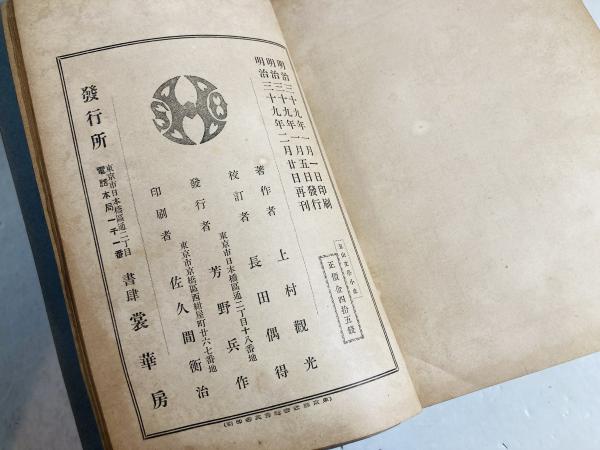 明治三十九年一月一日印刷
明治三十九年一月五日發行
明治三十九年二月廿日再刊
正價金四拾五錢
著作者 上村觀光
校訂者 長田偶得
東京市日本橋區通二丁目十八番地
發行者 芳野兵作
東京市京橋區西紺屋町廿六七番地
印刷者 佐久間衡治
發行所
東京市日本橋區通二丁目
電話本局一千一番
書肆 裳華房